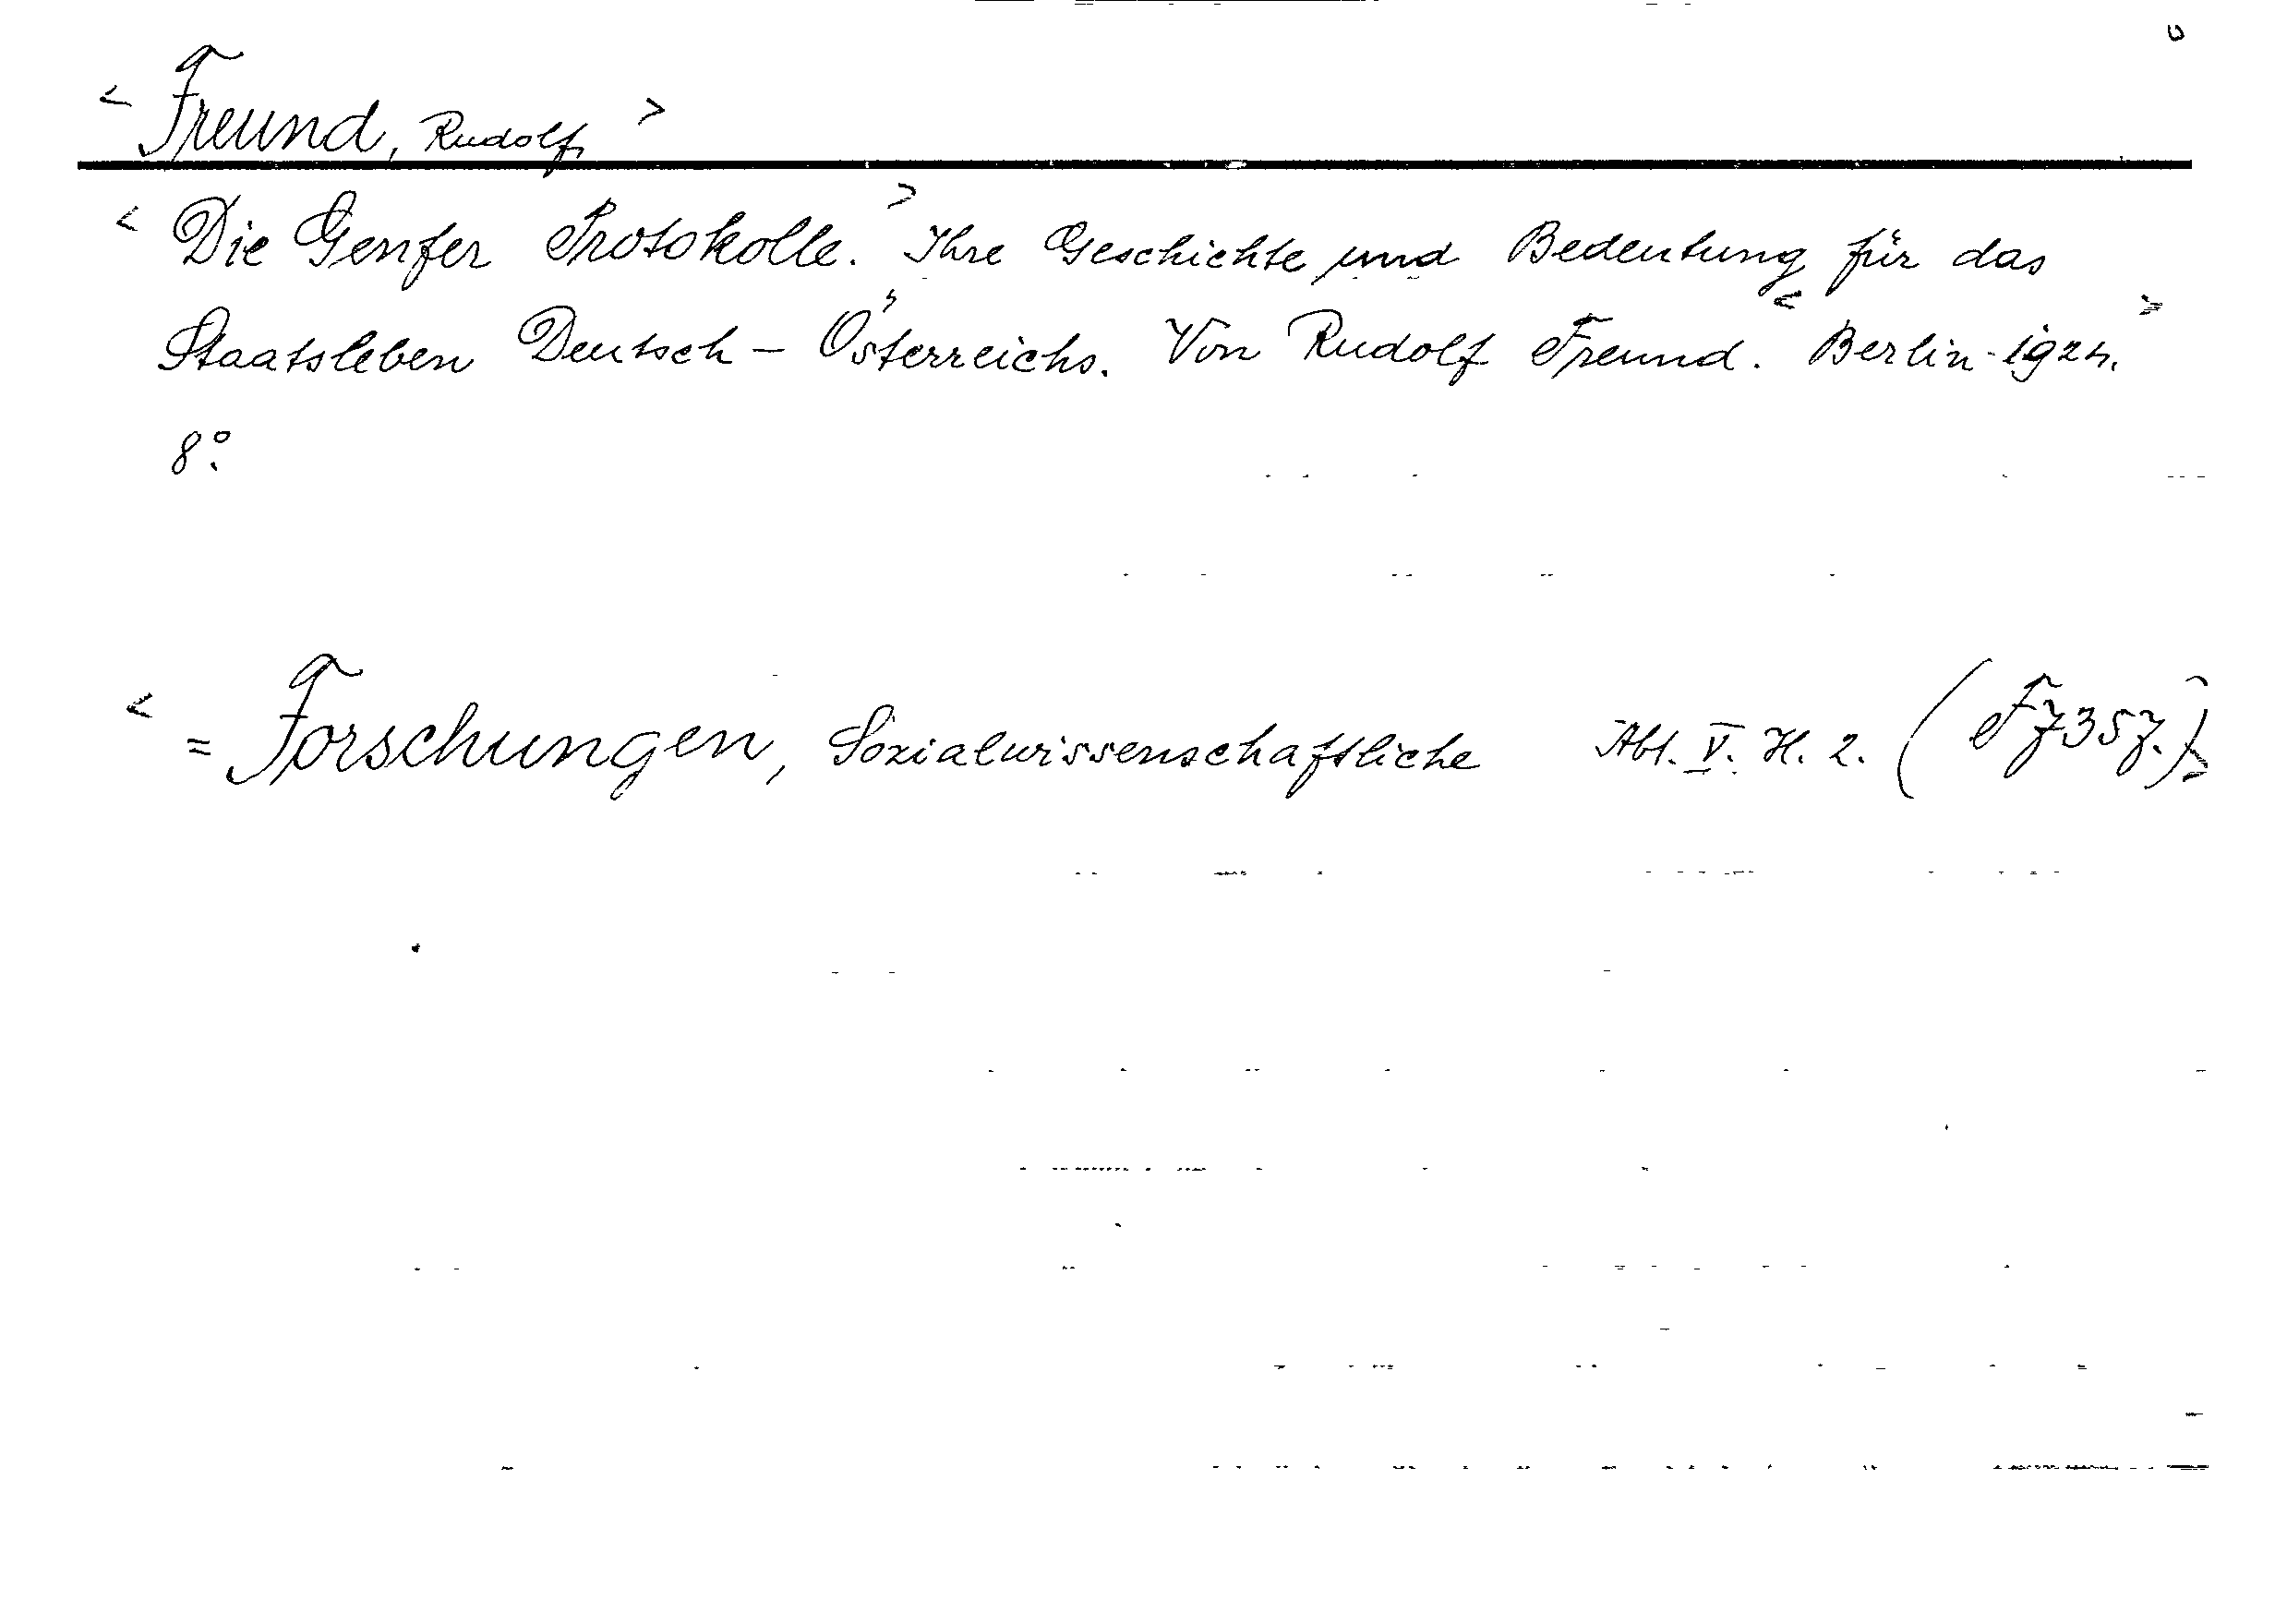 < Freund, Rudolf >
< Die Genfer Protokolle. > Ihre Geschichte und Bedeutung für das
Staatsleben Deutsch-Österreichs. Von Rudolf Freund. < Berlin 1924. >
8°.
< = Forschungen, Sozialwissenschaftliche Abt. V. H. 2. (F7357.) >